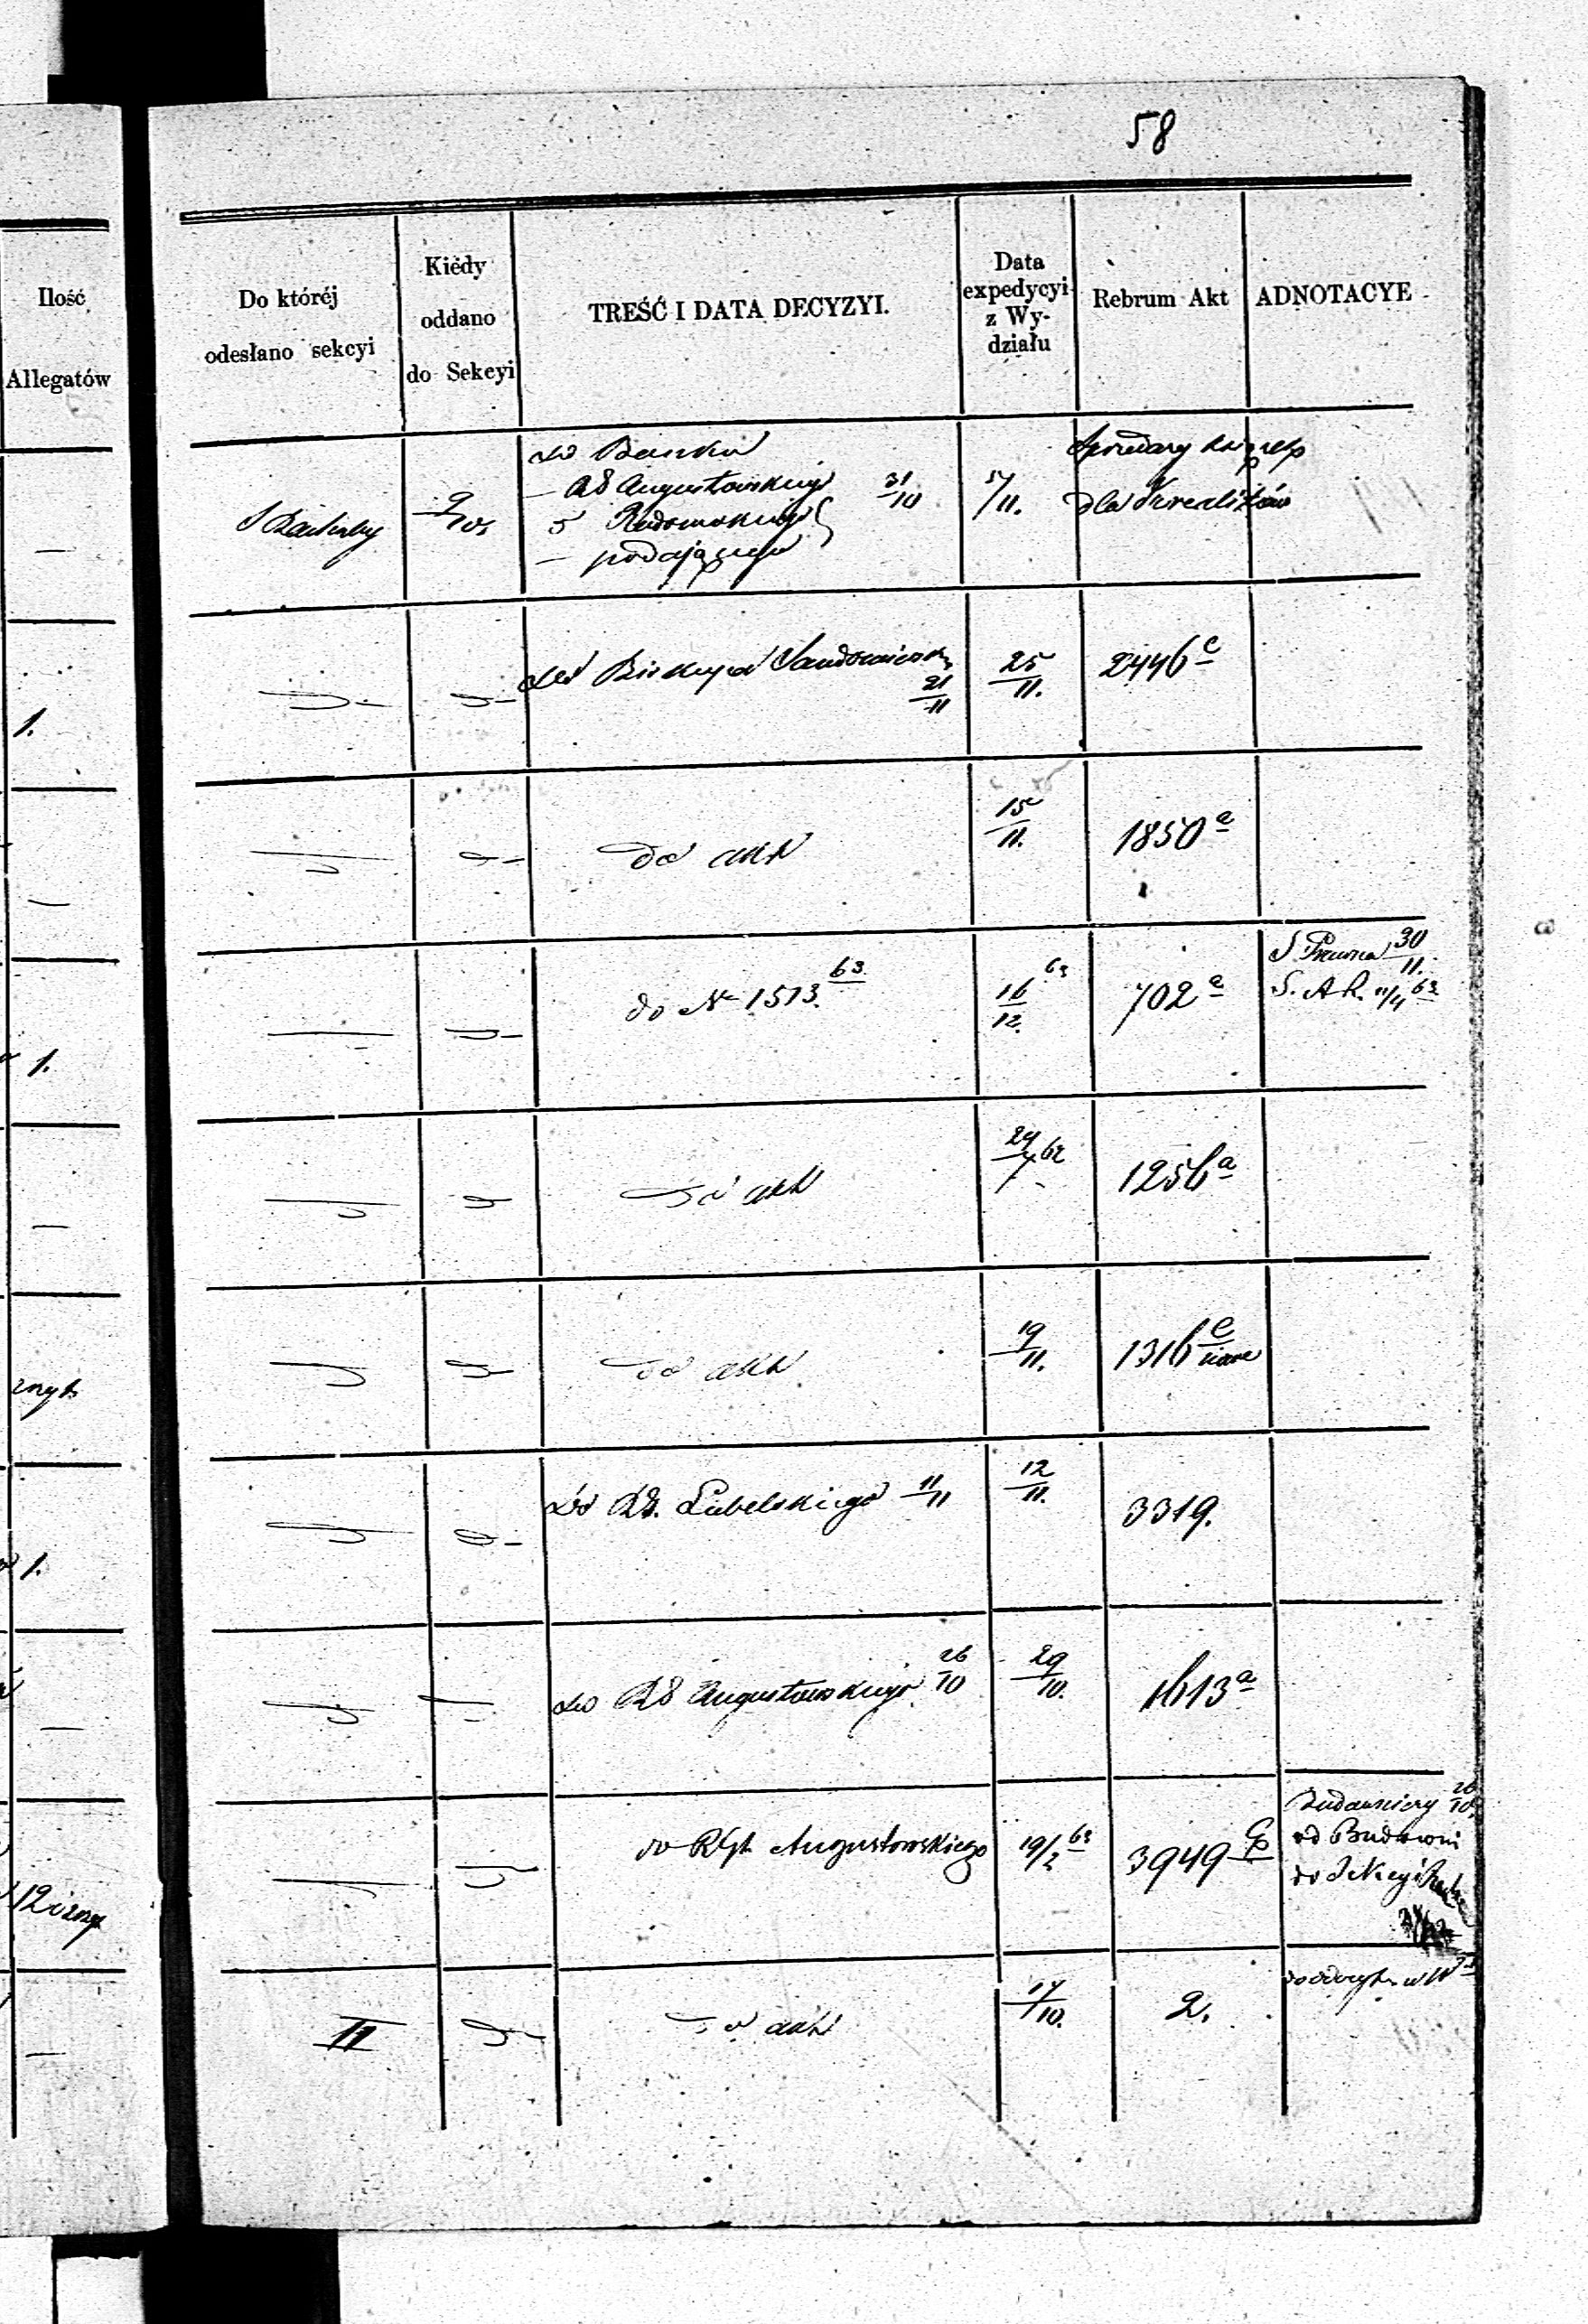 58
Ilość
Allegatów
Do któréj
odesłano sekcyi
Kiédy
oddano
do Sekcyi
TREŚĆ I DATA DECYZYI.
Data
expedycyi
z Wy-
działu
Rebrum Akt
ADNOTACYE
do Banku
— RG Augustowskiego 31/10
5 Radomskiego
— podającego
5/11.
dla Izraelitów
1.
do Biskupa Sandomiersk
21/11
25/11.
2446 c
do akt
15/11.
1850 a
1.
do № 1513. 63
16/12. 63
702 a
S. Prawna 30/11.
do akt
24/7 62
1256 a
do akt
19/11.
1316 e
1.
do RG. Lubelskiego 11/11
12/11.
3319.
do RG Augustowskiego 26/10
29/10.
1613 a
do RGub Augustowskiego
19/2 63
3949
26/10.
od Budowni
do Sekcyi
II
do akt
17/10.
2.